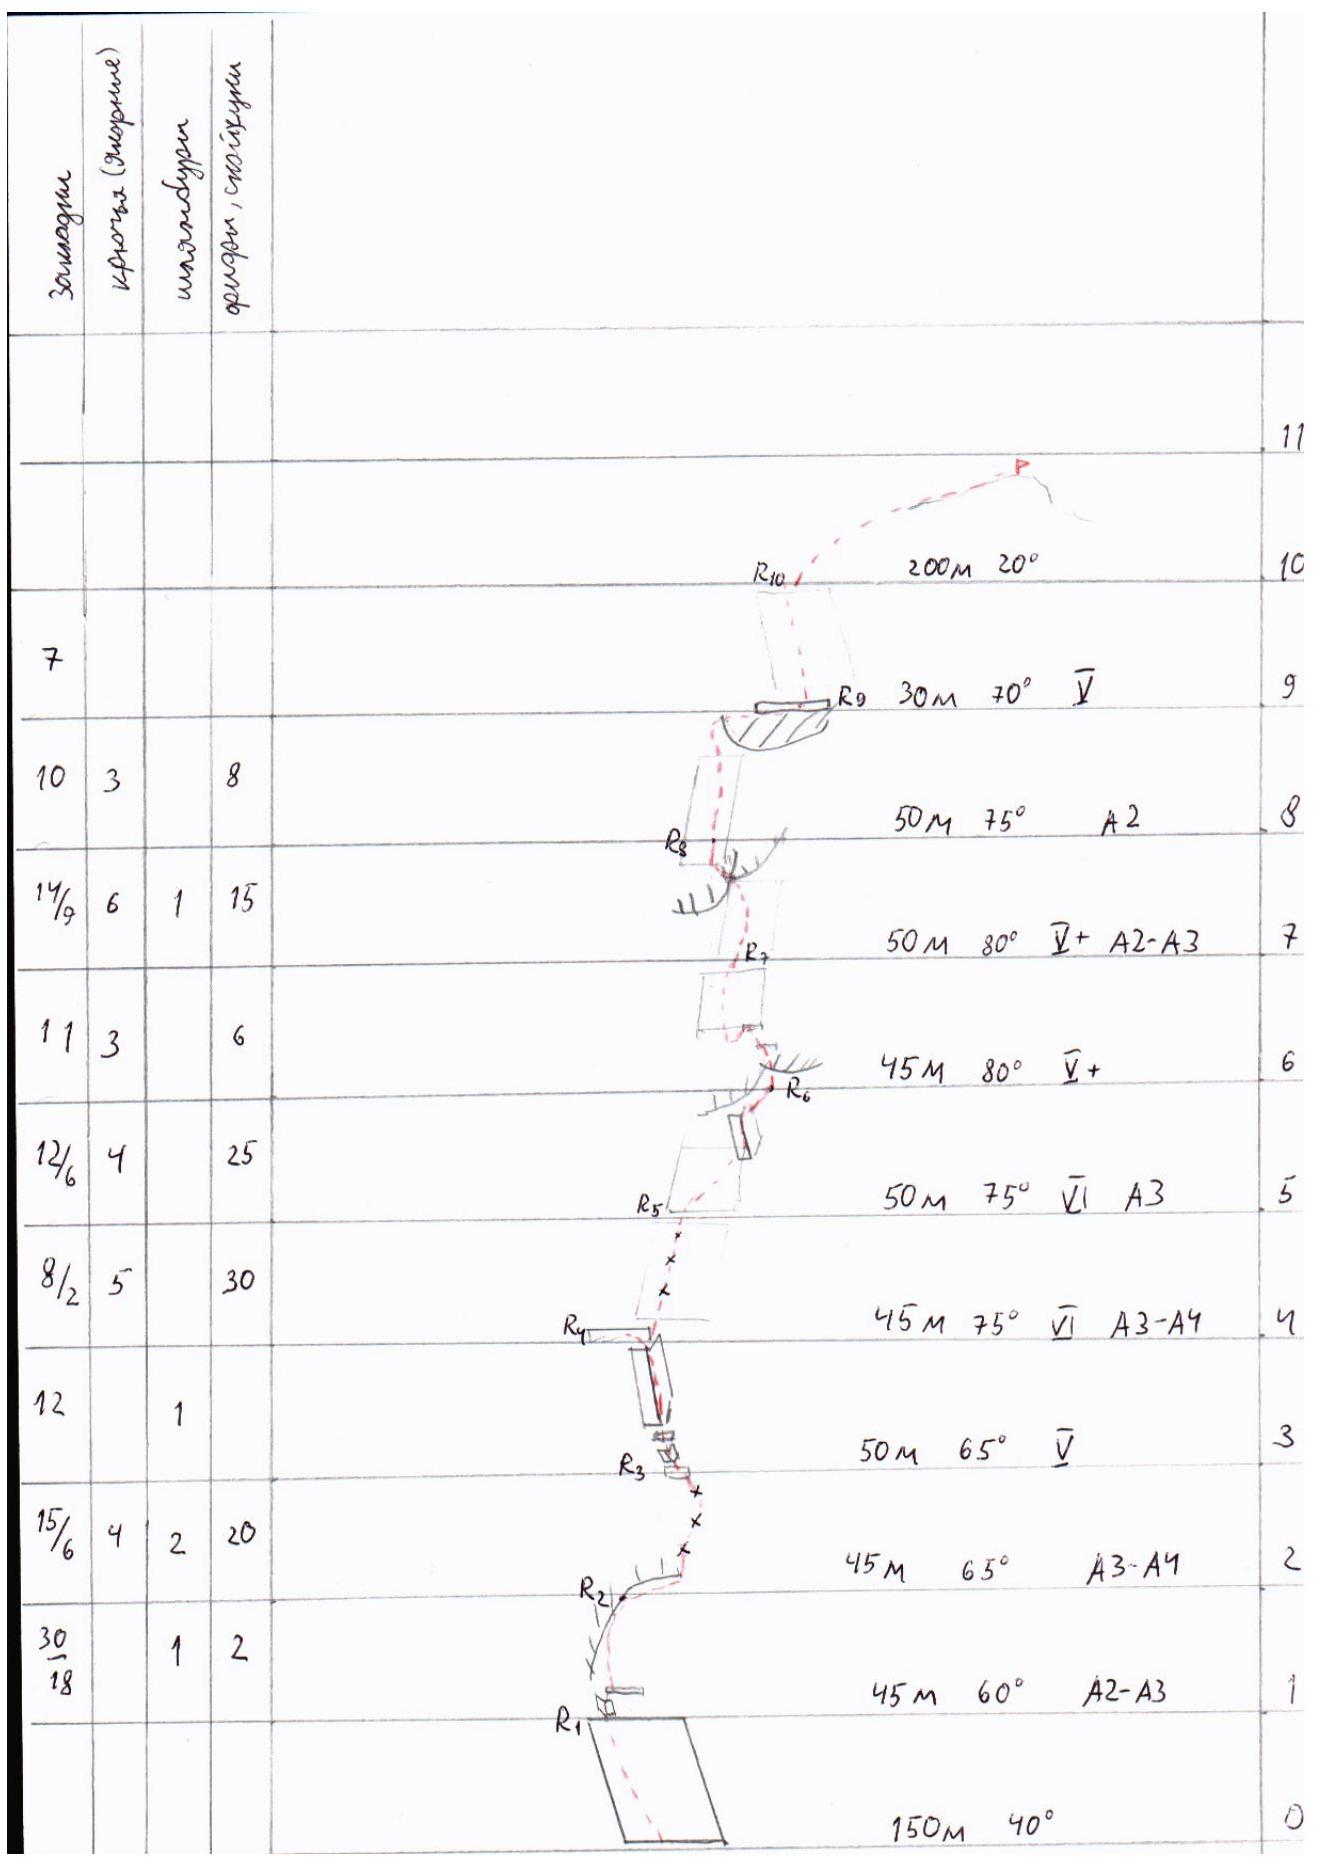 закладки
крючья (якорные)
шлямбуры
фриды, скайхуки
11
R10 200м 20° 10
7 R9 30м 70° V 9
10 3 8 R8 50м 75° A2 8
14/9 6 1 15 R7 50м 80° V+ A2-A3 7
11 3 6 R6 45м 80° V+ 6
12/6 4 25 R5 50м 75° VI A3 5
8/2 5 30 R4 45м 75° VI A3-A4 4
12 1 R3 50м 65° V 3
15/6 4 2 20 R2 45м 65° A3-A4 2
30/18 1 2 R1 45м 60° A2-A3 1
150м 40° 0